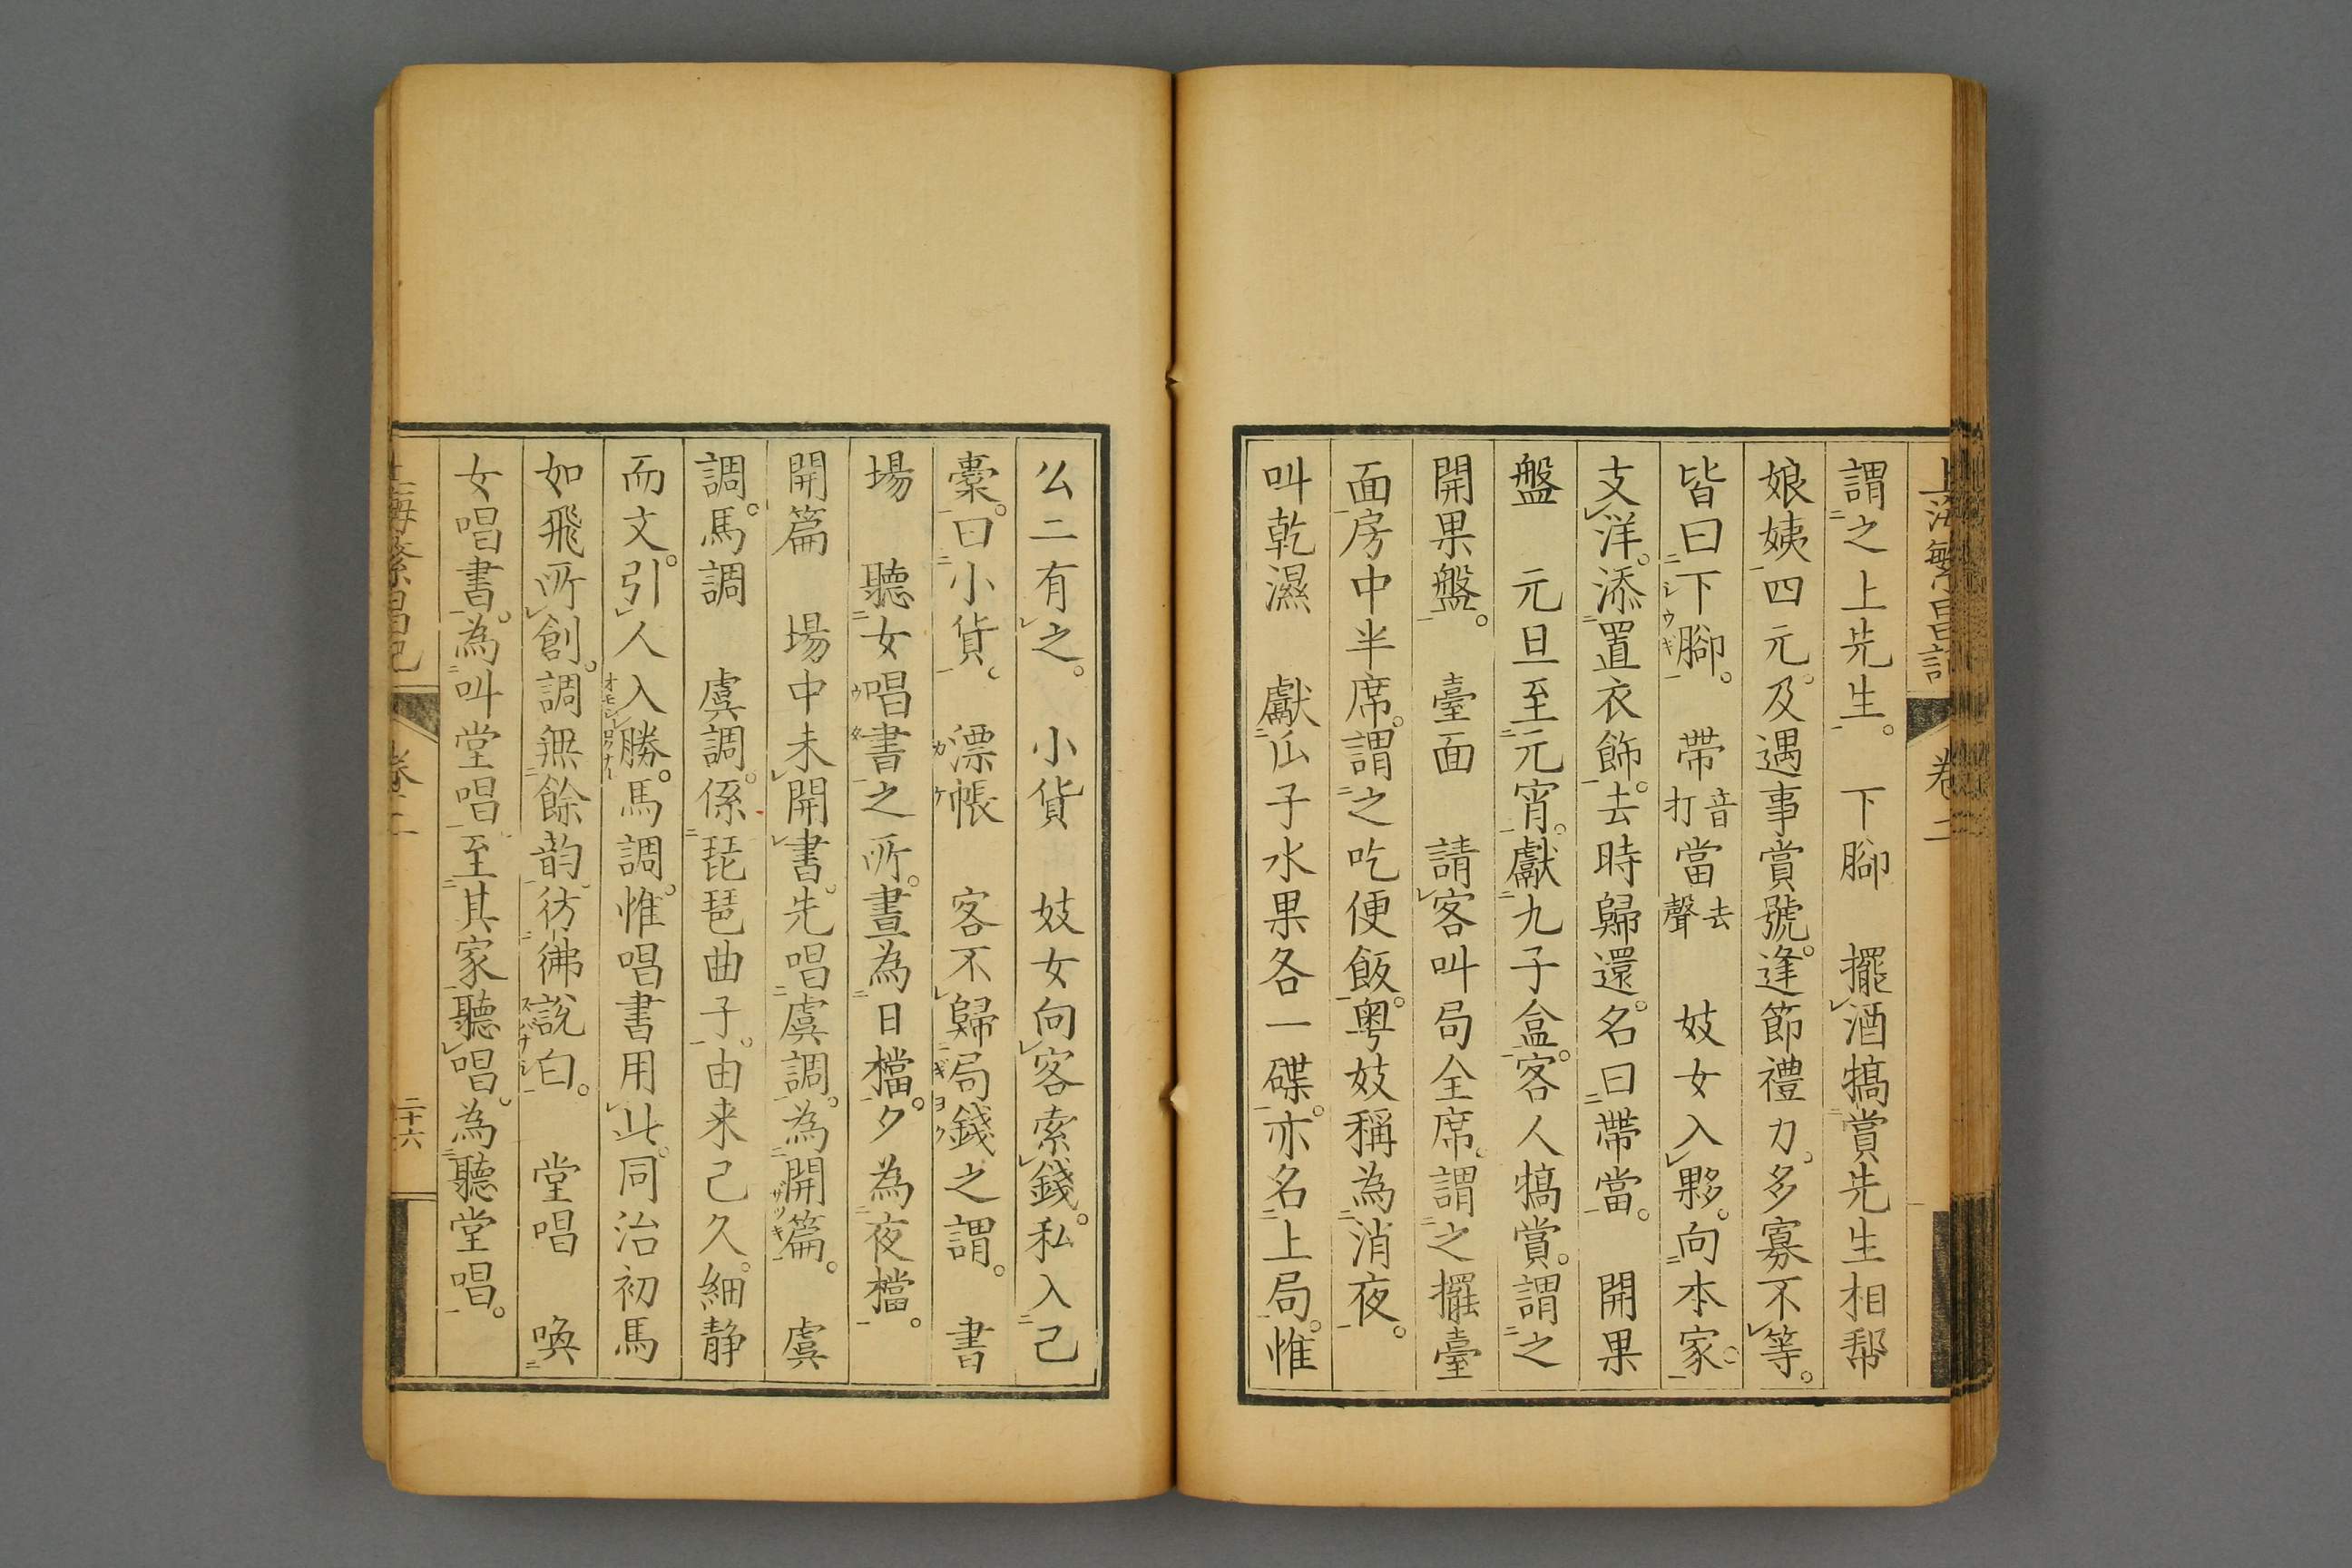 上海繁昌記 卷二
謂之上先生。 下腳 擺酒犒賞先生相幫
娘姨四元。及遇事賞號。逢節禮力。多寡不等。
皆曰下腳。 帶音打當去聲 妓女入夥。向本家
支洋。添置衣飾。去時歸還。名曰帶當。 開果
盤 元旦至元宵。獻九子盒。客人犒賞。謂之
開果盤。 臺面 請客叫局全席。謂之擺臺
面。房中半席。謂之吃便飯。粵妓稱為消夜。
叫乾濕 獻瓜子水果各一碟。亦名上局。惟
公二有之。 小貨 妓女向客索錢。私入己
橐。曰小貨。 漂帳 客不歸局錢之謂。 書
場 聽女唱書之所。晝為日檔。夕為夜檔。
開篇 場中未開書。先唱虞調。為開篇。 虞
調。馬調 虞調。係琵琶曲子。由来已久。細静
而文。引人入勝。馬調。惟唱書用此。同治初馬
如飛所創。調無餘韵。彷彿說白。 堂唱 喚
女唱書。為叫堂唱。至其家聽唱。為聽堂唱。
上海繁昌記 卷二 二十六